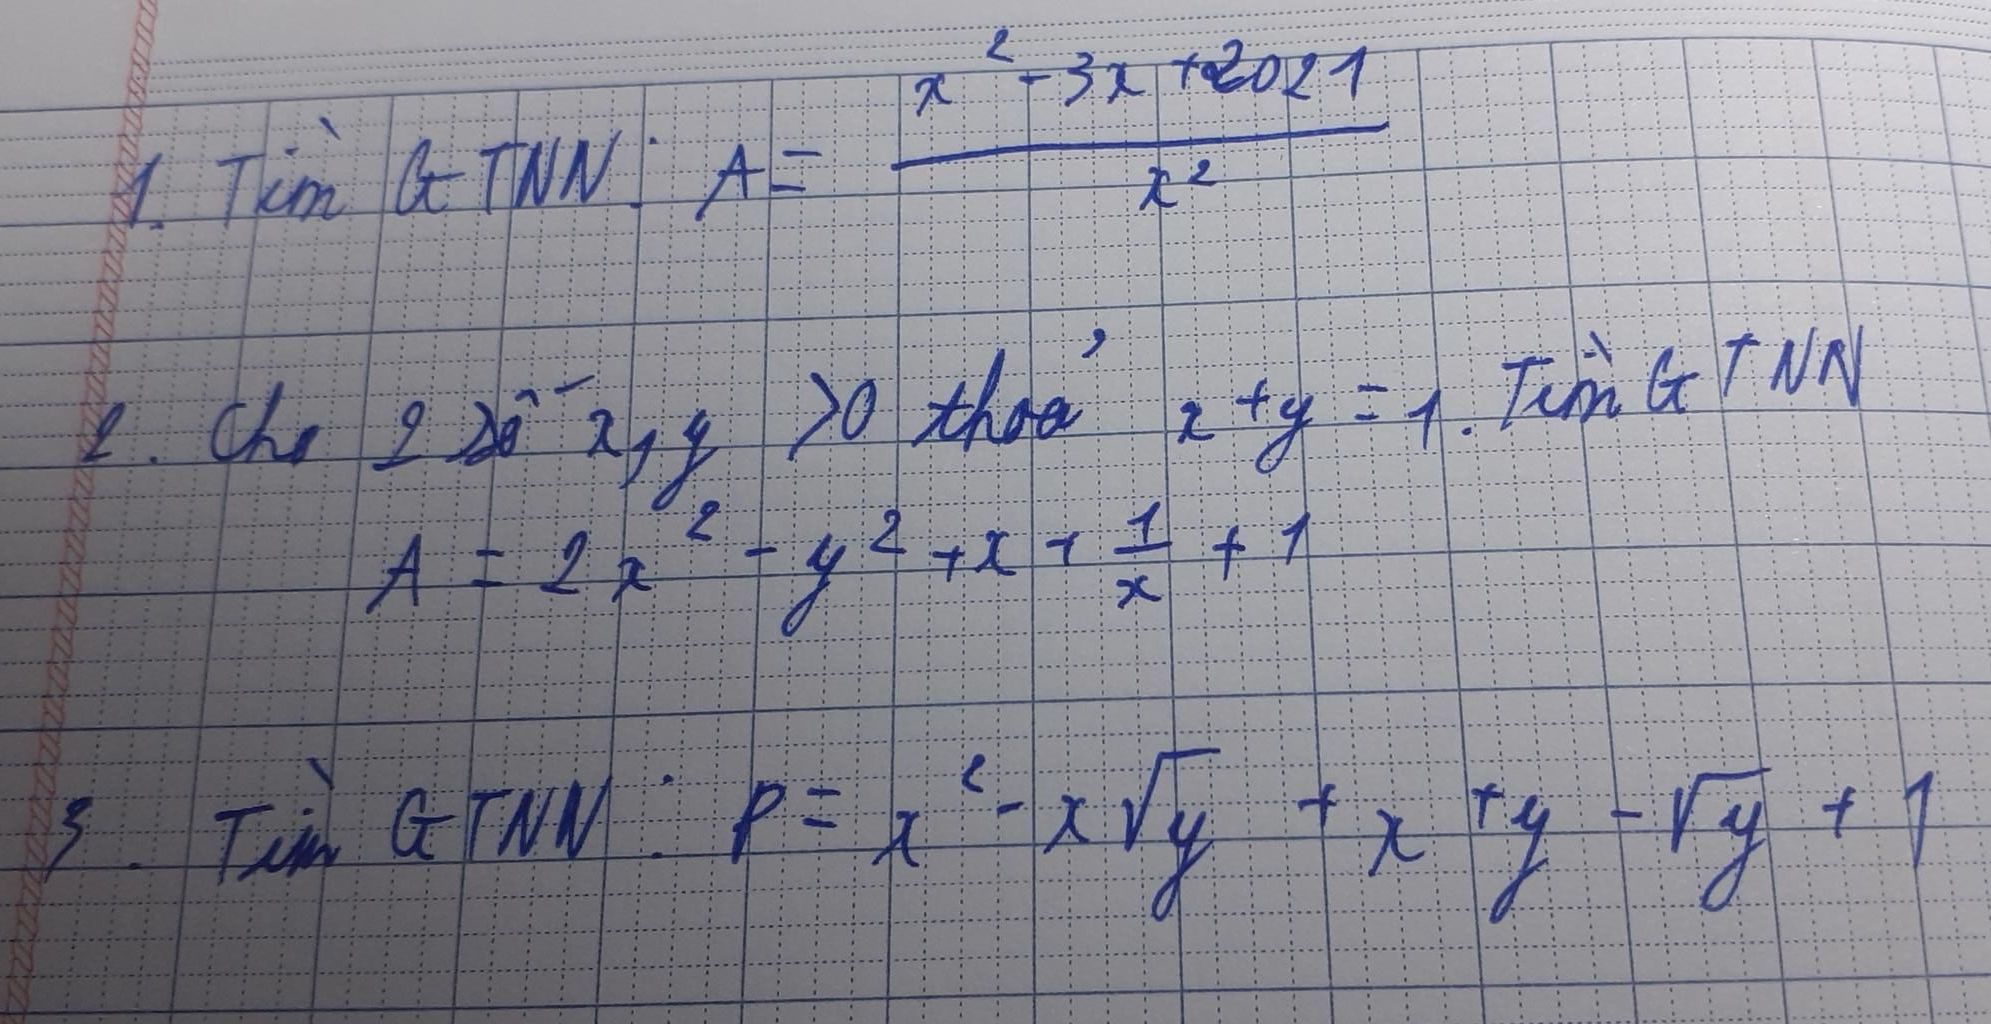 1. Tìm GTNN: A = \frac{x^2 - 3x + 2021}{x^2}
2. Cho 2 số x, y >0 thoả x + y = 1. Tìm GTNN
A = 2x^2 - y^2 + x + \frac{1}{x} + 1
3. Tìm GTNN: P = x^2 - x\sqrt{y} + x + y - \sqrt{y} + 1